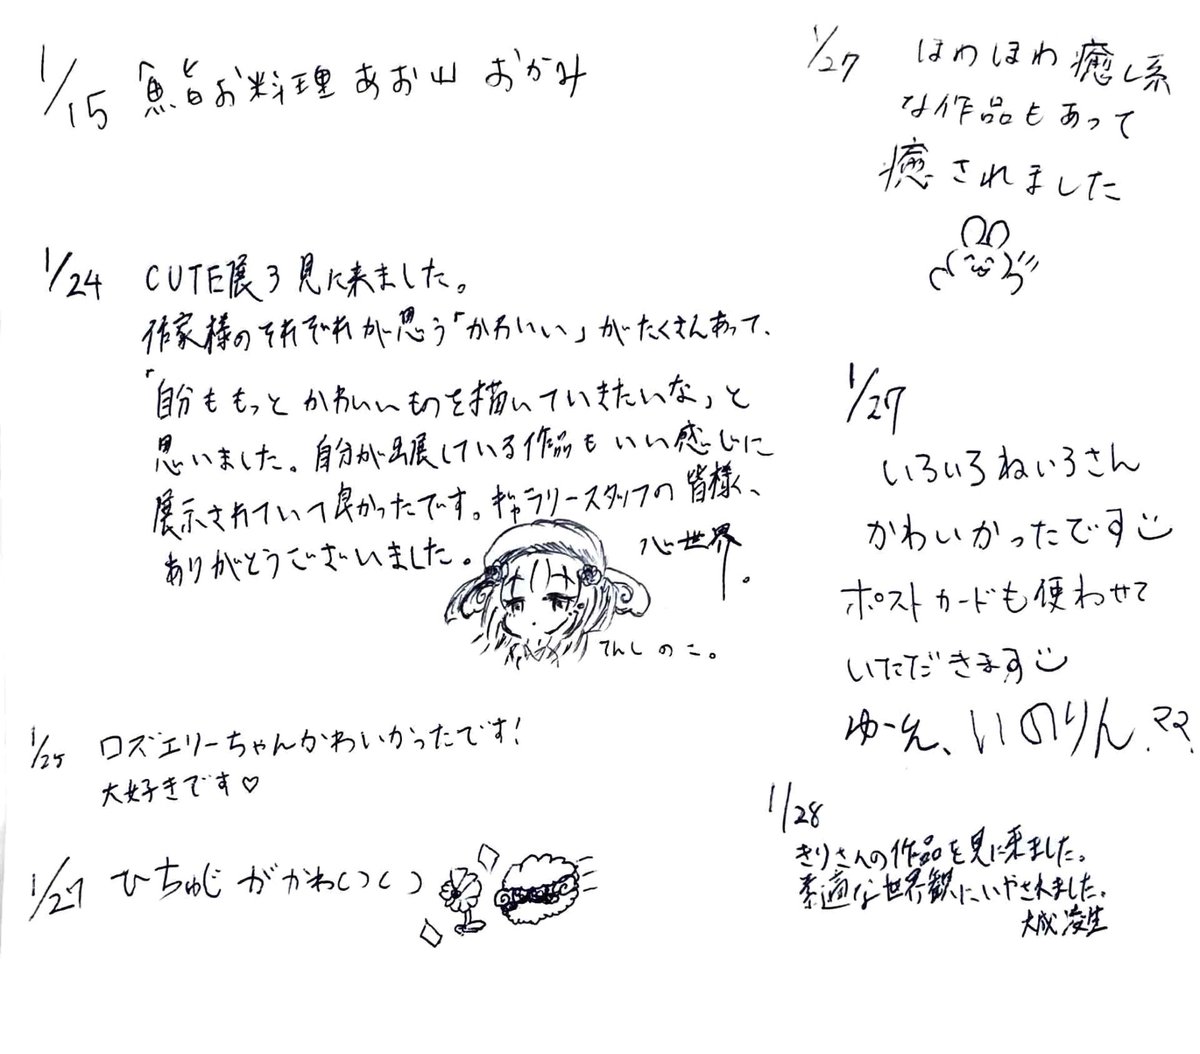 1/15 魚旨お料理 あお山 おかみ
1/24 CUTE展3見に来ました。
作家様のそれぞれが思う「かわいい」がたくさんあって、
「自分ももっとかわいいものを描いていきたいな」と
思いました。自分が出展している作品もいい感じに
展示されていて良かったです。ギャラリースタッフの皆様、
ありがとうございました。
心世界。
てんしのこ。
1/25 ロズエリーちゃんかわいかったです!
大好きです♡
1/27 ひちゅじがかわいい
1/27 ほわほわ癒し系
な作品もあって
癒されました
1/27
いろいろねいろさん
かわいかったです
ポストカードも使わせて
いただきます
ゆーえ、いのりん、ママ
1/28
きりさんの作品を見に来ました。
素適な世界観にいやされました。